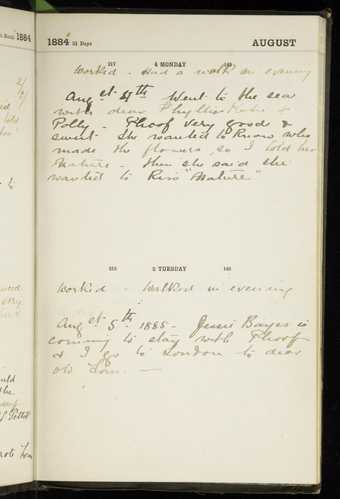 1884
1884 31 Days
AUGUST
217 4 MONDAY 149
Worked - Had a walk in evening
Augst 4th Went to the sea
with dear Phyllis Katie &
Polly - Phoof very good &
sweet. She wanted to know who
made the flowers, so I told her
Nature - then she said she
wanted to Kiss "Nature"
218 5 TUESDAY 148
Worked - Walked in evening
Augst 5th 1885 - Jessie Bayes is
coming to stay with Phoof
& I go to London to dear
old Tom. —